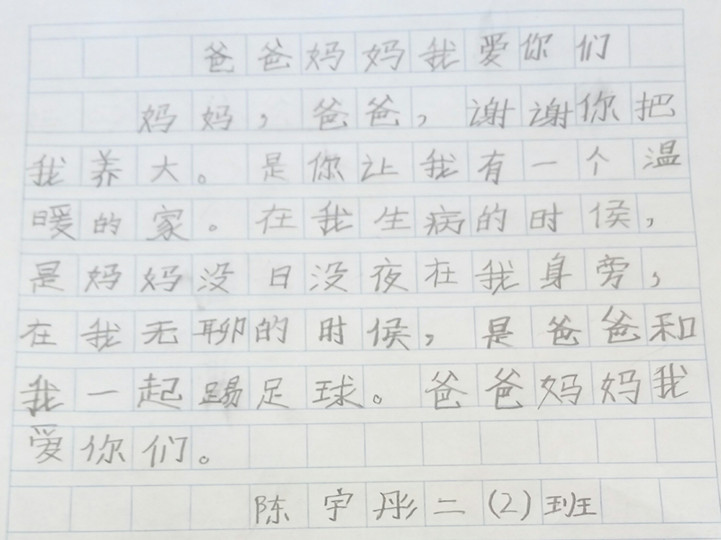 爸爸妈妈我爱你们
妈妈，爸爸，谢谢你把
我养大。是你让我有一个温
暖的家。在我生病的时候，
是妈妈没日没夜在我身旁，
在我无聊的时候，是爸爸和
我一起踢足球。爸爸妈妈我
爱你们。
陈宇彤二(2)班